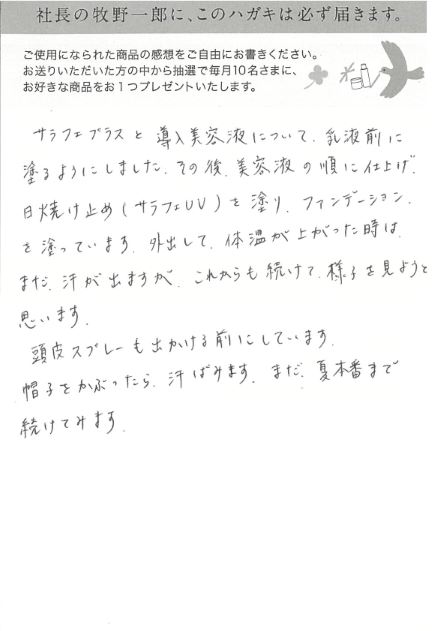 社長の牧野一郎に、このハガキは必ず届きます。
ご使用になられた商品の感想をご自由にお書きください。
お送りいただいた方の中から抽選で毎月10名さまに、
お好きな商品をお1つプレゼントいたします。
サラフェプラスと導入美容液について、乳液前に
塗るようにしました。その後、美容液の順に仕上げ、
日焼け止め(サラフェUV)を塗り、ファンデーション、
を塗っています。外出して、体温が上がった時は、
まだ、汗が出ますが、これからも続けて、様子を見ようと
思います。
頭皮スプレーも出かける前にしています。
帽子をかぶったら、汗ばみます。まだ、夏本番まで
続けてみます。